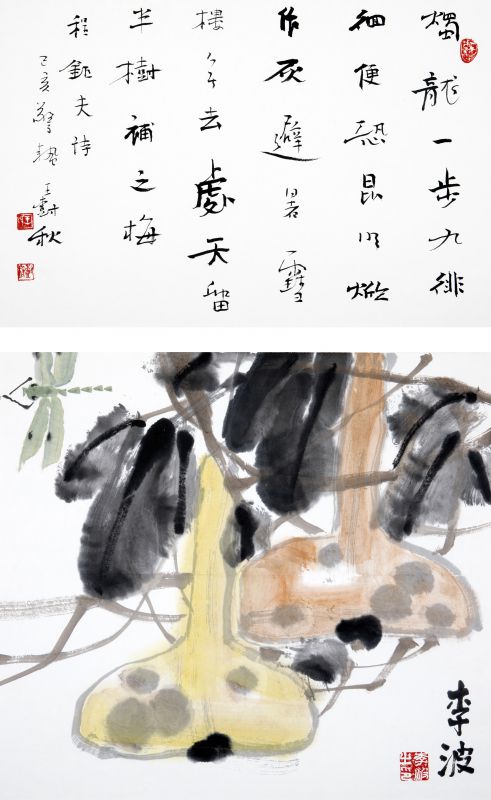 燭龍一步九徘
徊便恐昆明
作灰避暑靈
樓去處天留
半樹補之梅
程鉅夫詩
己亥驚蟄 王樹秋
李波